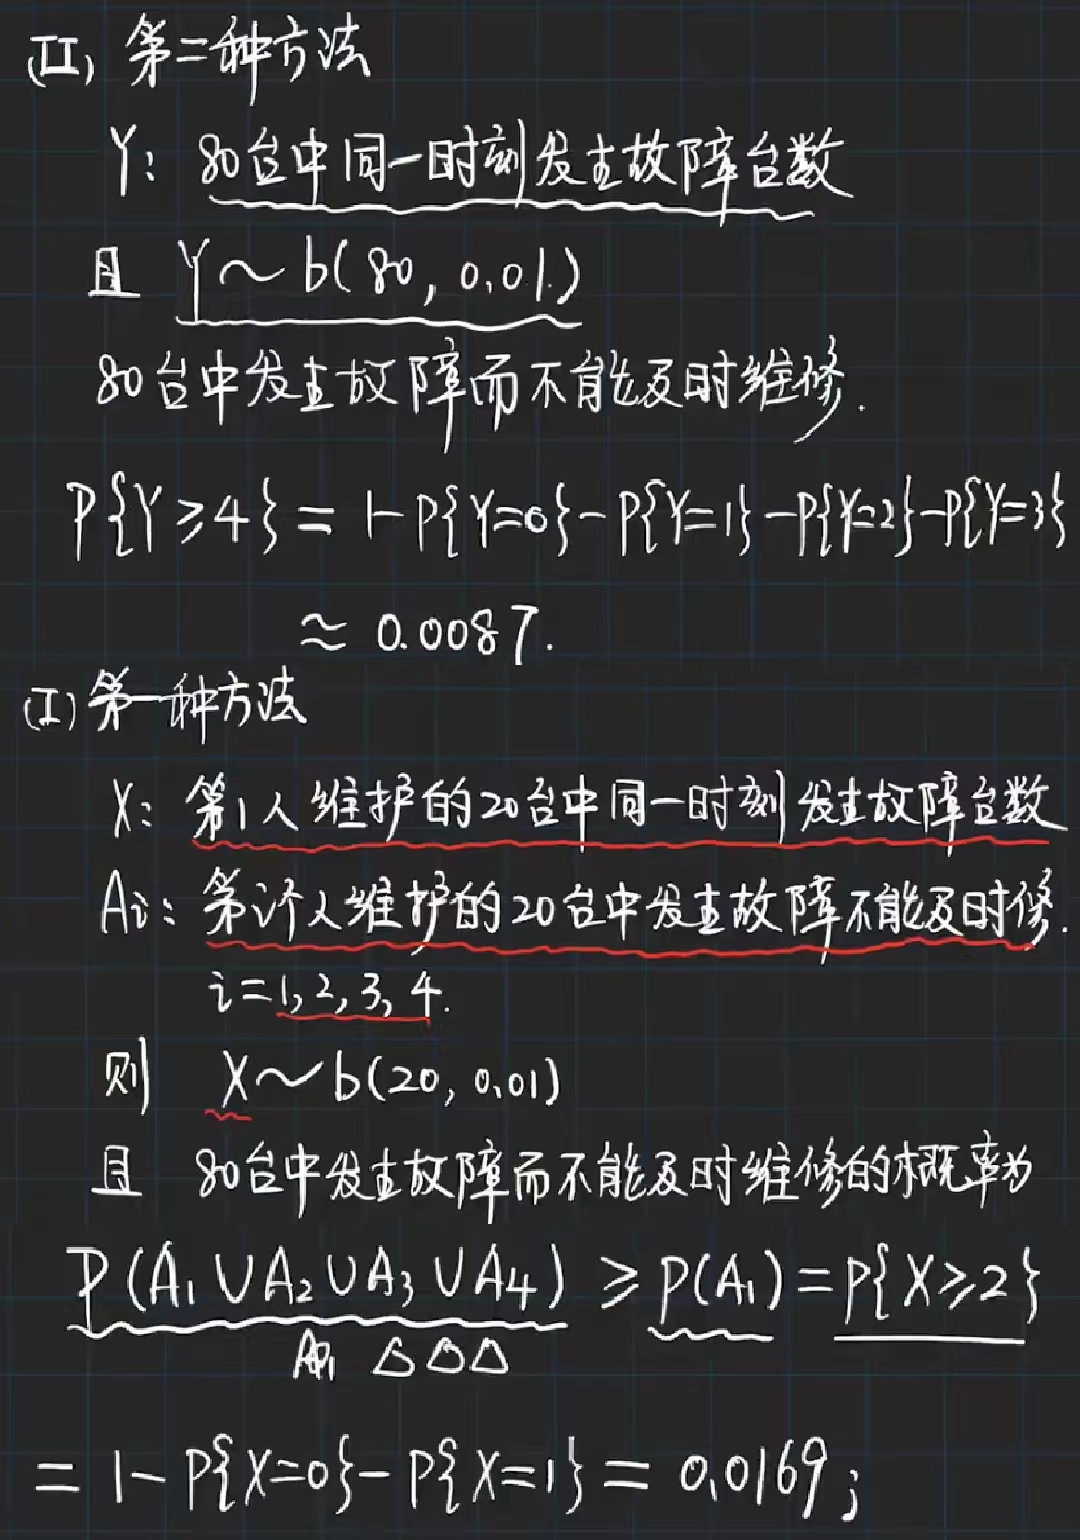 (II) 第二种方法
Y: 80台中同一时刻发生故障台数
且 Y~b(80, 0.01.)
80台中发生故障而不能及时维修.
P{Y≥4} = 1-P{Y=0}-P{Y=1}-P{Y=2}-P{Y=3}
≈ 0.0087.
(I) 第一种方法
X: 第1人维护的20台中同一时刻发生故障台数
Ai: 第i个人维护的20台中发生故障不能及时修.
i=1,2,3,4.
则 X~b(20, 0.01)
且 80台中发生故障而不能及时维修的概率为
P(A₁∪A₂∪A₃∪A₄) ≥ P(A₁) = P{X≥2}
△△△
= 1-P{X=0}-P{X=1} = 0.0169;